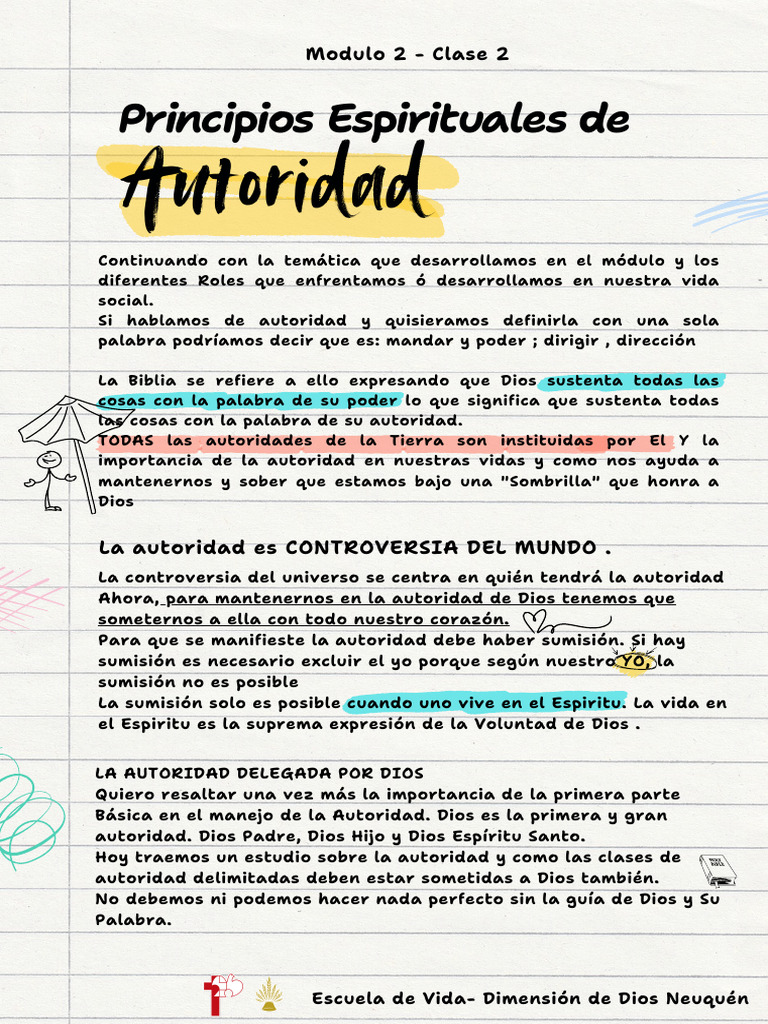 Modulo 2 - Clase 2
Principios Espirituales de
Autoridad
Continuando con la temática que desarrollamos en el módulo y los
diferentes Roles que enfrentamos ó desarrollamos en nuestra vida
social.
Si hablamos de autoridad y quisieramos definirla con una sola
palabra podríamos decir que es: mandar y poder ; dirigir , dirección
La Biblia se refiere a ello expresando que Dios sustenta todas las
cosas con la palabra de su poder lo que significa que sustenta todas
las cosas con la palabra de su autoridad.
TODAS las autoridades de la Tierra son instituidas por El Y la
importancia de la autoridad en nuestras vidas y como nos ayuda a
mantenernos y sober que estamos bajo una "Sombrilla" que honra a
Dios
La autoridad es CONTROVERSIA DEL MUNDO .
La controversia del universo se centra en quién tendrá la autoridad
Ahora, para mantenernos en la autoridad de Dios tenemos que
someternos a ella con todo nuestro corazón.
Para que se manifieste la autoridad debe haber sumisión. Si hay
sumisión es necesario excluir el yo porque según nuestro YO, la
sumisión no es posible
La sumisión solo es posible cuando uno vive en el Espiritu. La vida en
el Espiritu es la suprema expresión de la Voluntad de Dios .
LA AUTORIDAD DELEGADA POR DIOS
Quiero resaltar una vez más la importancia de la primera parte
Básica en el manejo de la Autoridad. Dios es la primera y gran
autoridad. Dios Padre, Dios Hijo y Dios Espíritu Santo.
Hoy traemos un estudio sobre la autoridad y como las clases de
autoridad delimitadas deben estar sometidas a Dios también.
No debemos ni podemos hacer nada perfecto sin la guía de Dios y Su
Palabra.
Escuela de Vida- Dimensión de Dios Neuquén